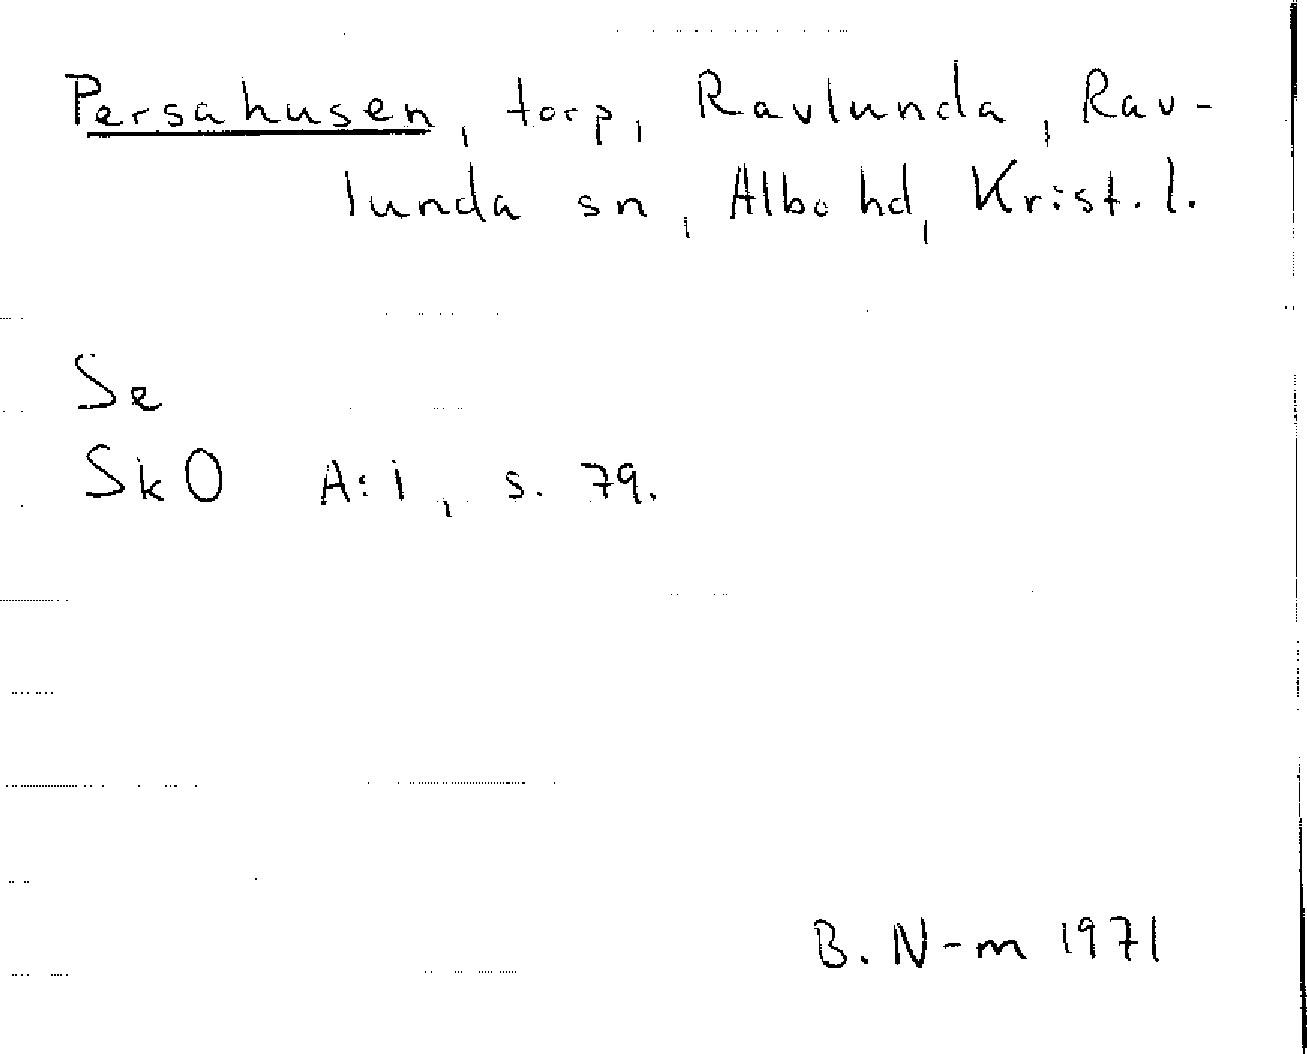 Persahusen, torp, Ravlunda, Rav-
lunda sn, Albo hd, Krist. l.
Se
SkO A:1, s. 79.
B. N-m 1971